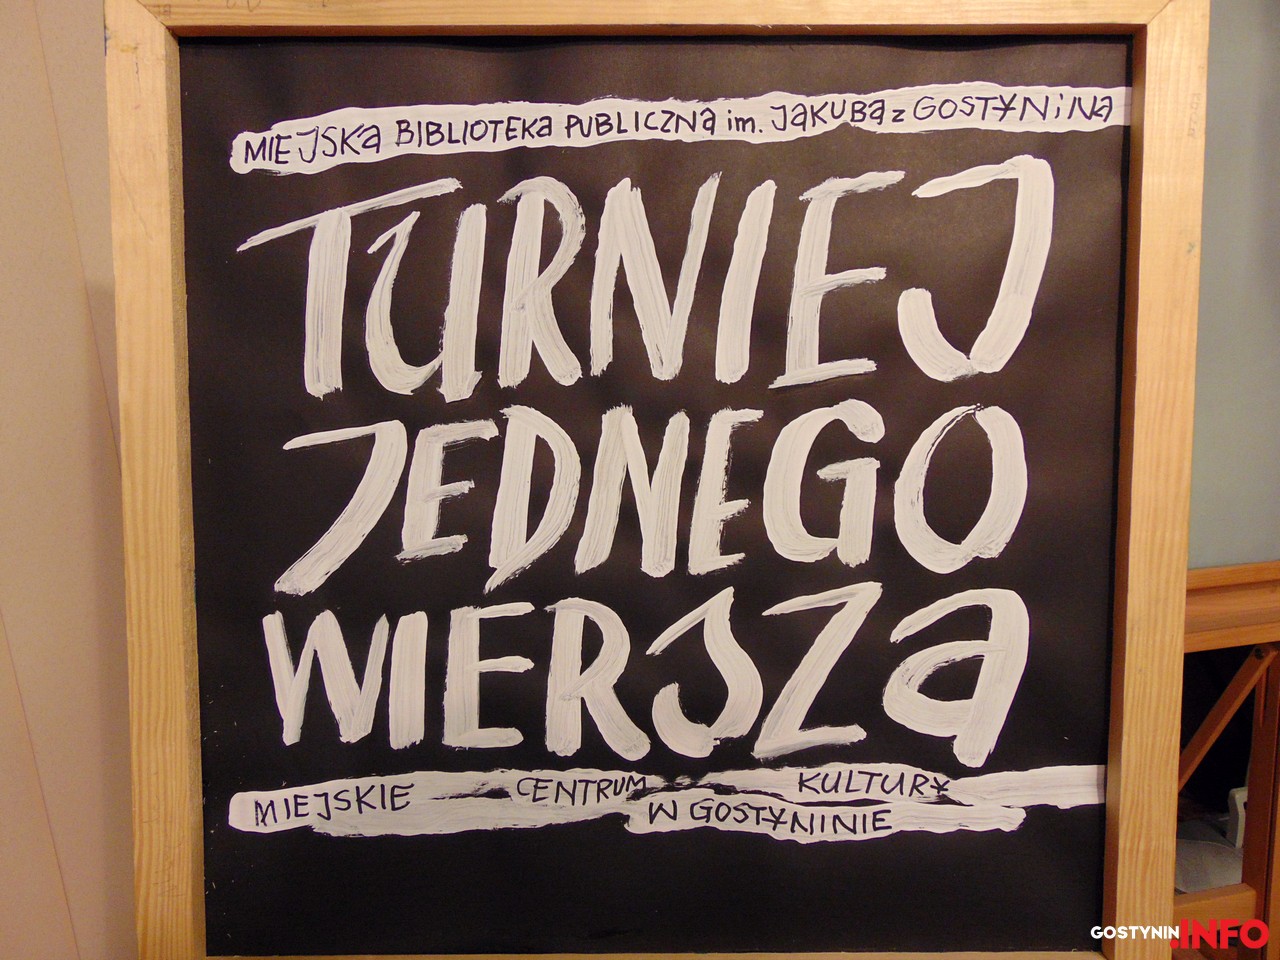 MIEJSKA BIBLIOTEKA PUBLICZNA im. JAKUBA z GOSTYNiNA
TURNIEJ
JEDNEGO
WIERSZA
MIEJSKIE CENTRUM KULTURY
W GOSTYNINIE
GOSTYNIN.INFO